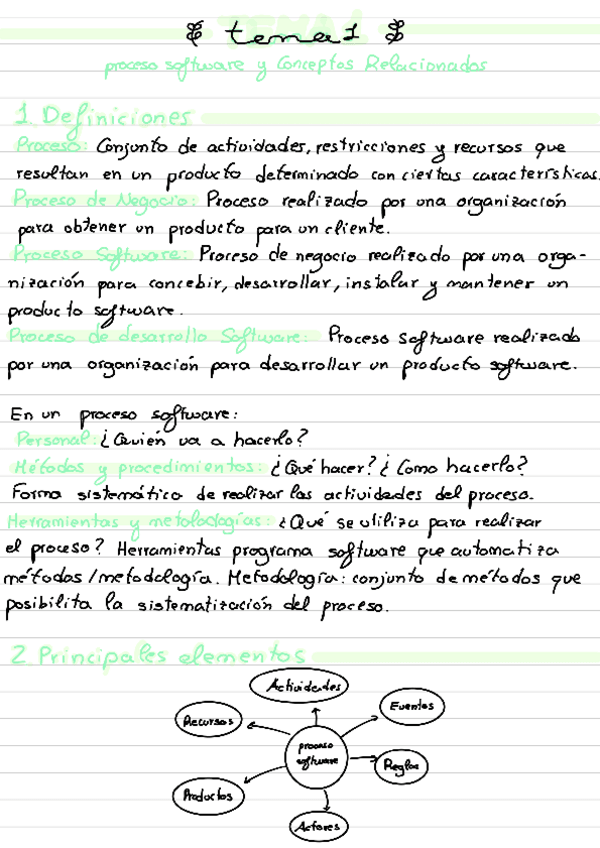 tema 1
proceso software y Conceptos Relacionados
1. Definiciones
Proceso: Conjunto de actividades, restricciones y recursos que
resultan en un producto determinado con ciertas características.
Proceso de Negocio: Proceso realizado por una organización
para obtener un producto para un cliente.
Proceso Software: Proceso de negocio realizado por una orga-
nización para concebir, desarrollar, instalar y mantener un
producto software.
Proceso de desarrollo Software: Proceso software realizado
por una organización para desarrollar un producto software.
En un proceso software:
Personal: ¿Quién va a hacerlo?
Métodos y procedimientos: ¿Qué hacer? ¿Como hacerlo?
Forma sistemático de realizar las actividades del proceso.
Herramientas y metolodogías: ¿Qué se utiliza para realizar
el proceso? Herramientas programa software que automatiza
métodos/metodología. Metodología: conjunto de métodos que
posibilita la sistematización del proceso.
2. Principales elementos
Actividades
Recursos
Eventos
proceso
software
Reglas
Productos
Actores